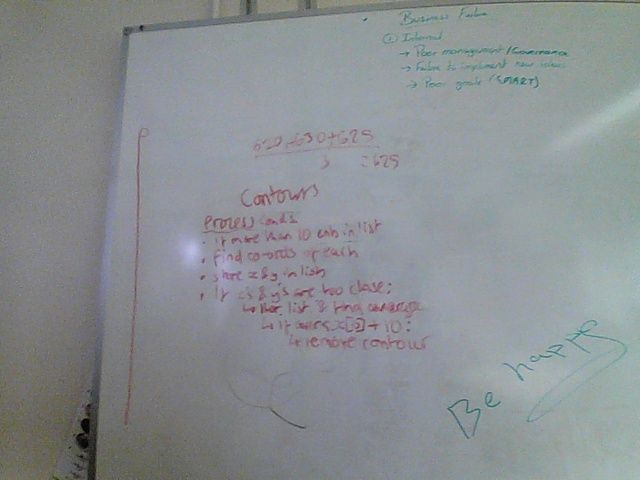 Business Failure
① Internal
→ Poor management/Governance
→ Failure to implement new ideas
→ Poor goals (SMART)
620+630+625
3 =625
Contours
Process conts:
• If more than 10 cnts in list
• Find co-ords of each
• Store x & y in lists
• If x's & y's are too close:
↳ list & find average
↳ If x[0] + 10:
↳ remove contour
Be happy